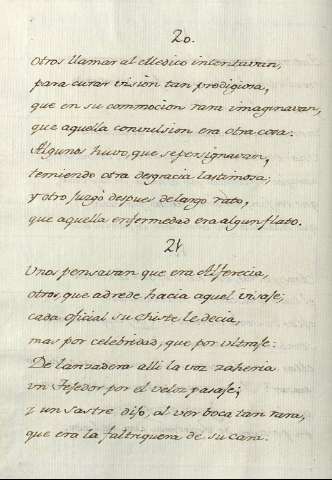 20.
Otros llamar al Medico intentavan,
para curar vision tan prodigiosa,
que en su commocion rara imaginavan,
que aquella convulsion era otra cosa.
Algunos huvo, que se persignavan,
temiendo otra desgracia lastimosa;
y otro juzgó despues de largo rato,
que aquella enfermedad era algun flato.
21
Unos pensavan que era Alferecia,
otros, que adrede hacia aquel visaje;
cada oficial su chiste le decia,
mas por celebridad, que por ultraje.
De lanzadera alli la voz zaheria
un Tejedor por el veloz pasaje;
y un sastre dijo, al ver boca tan rara,
que era la faltriquera de su cara.